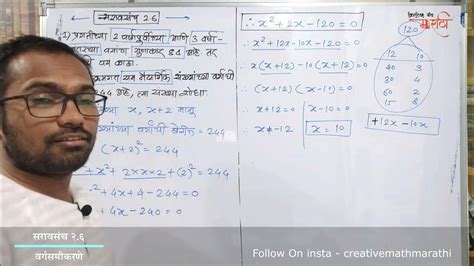 सरावसंच 2.6
1) प्रगतीच्या 2 वर्षापूर्वीच्या आणि 3 वर्षा
वयाचा गुणाकार 84 आहे तर
वय काढा.
संख्यांच्या वर्गांची
244 आहे, त्या संख्या शोधा
x, x+2 मानू
वर्गांची बेरीज = 244
(x+2)² = 244
x² + 2×x×2 + (2)² = 244
² + 4x + 4 - 244 = 0
+ 4x - 240 = 0
∴ x² + 2x - 120 = 0
x² + 12x - 10x - 120 = 0
x(x+12) - 10(x+12) = 0
(x+12)(x-10) = 0
x+12 = 0 | x-10 = 0
x ≠ -12 | x = 10
मराठी
120
12 10
40 3
30 4
60 2
15 8
+12x - 10x
सरावसंच २.६
वर्गसमीकरणे
Follow On insta - creativemathmarathi